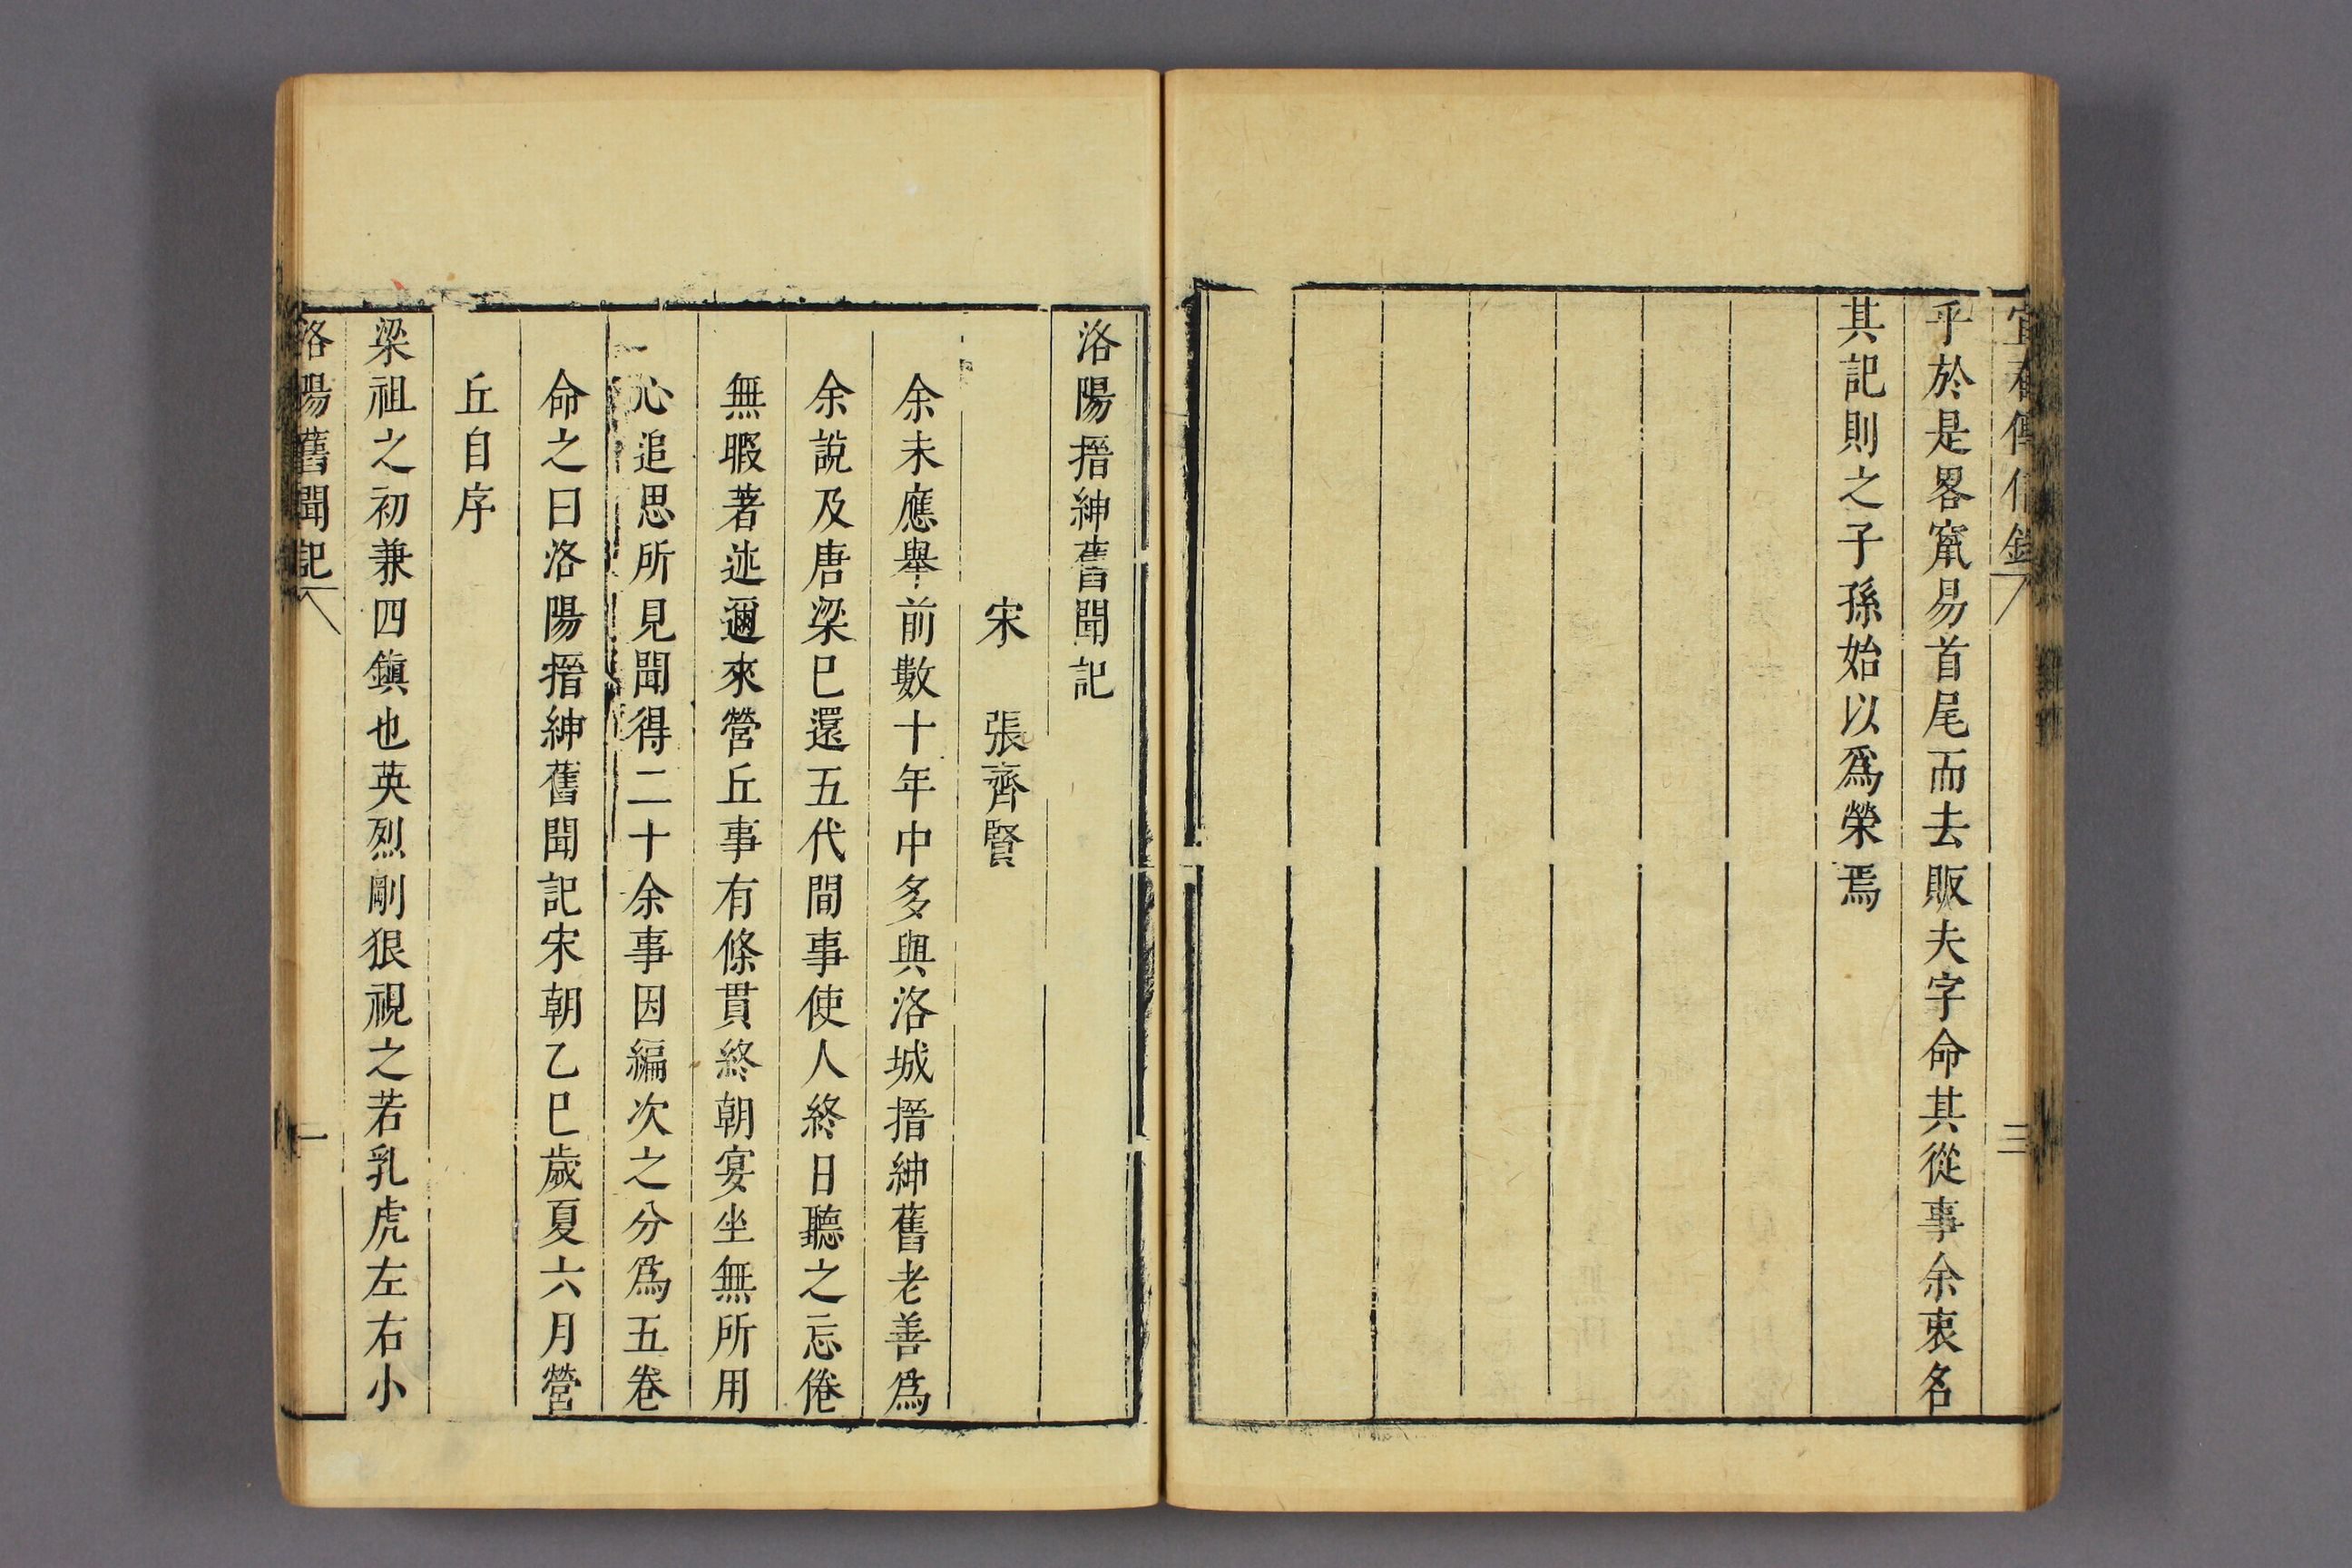 宜春傳信錄 三
乎於是畧竄易首尾而去販夫字命其從事余衷名
其記則之子孫始以爲榮焉
洛陽搢紳舊聞記
宋 張齊賢
余未應舉前數十年中多與洛城搢紳舊老善爲
余說及唐梁已還五代間事使人終日聽之忘倦
無暇著述邇來營丘事有條貫終朝宴坐無所用
心追思所見聞得二十余事因編次之分爲五卷
命之曰洛陽搢紳舊聞記宋朝乙巳歲夏六月營
丘自序
梁祖之初兼四鎮也英烈剛狠視之若乳虎左右小
洛陽舊聞記 一